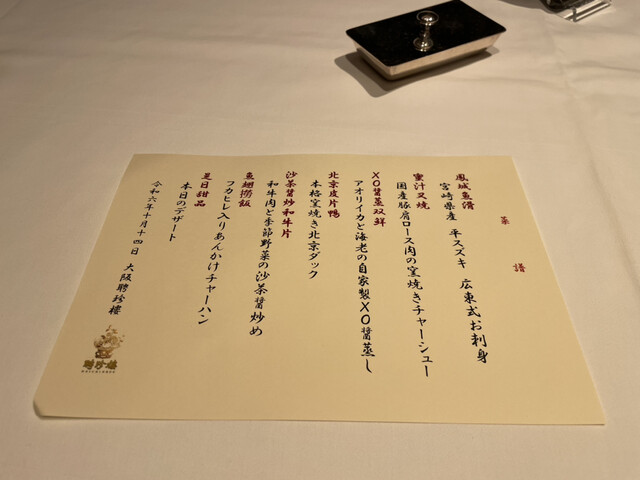 菜譜
鳳城魚滑
宮崎県産 平スズキ 広東式お刺身
蜜汁叉焼
国産豚肩ロース肉の窯焼きチャーシュー
XO醤蒸双鮮
アオリイカと海老の自家製XO醤蒸し
北京皮片鴨
本格窯焼き北京ダック
沙茶醤炒和牛片
和牛肉と季節野菜の沙茶醤炒め
魚翅撈飯
フカヒレ入りあんかけチャーハン
是日甜品
本日のデザート
令和六年十月十四日 大阪聘珍樓
聘珍樓